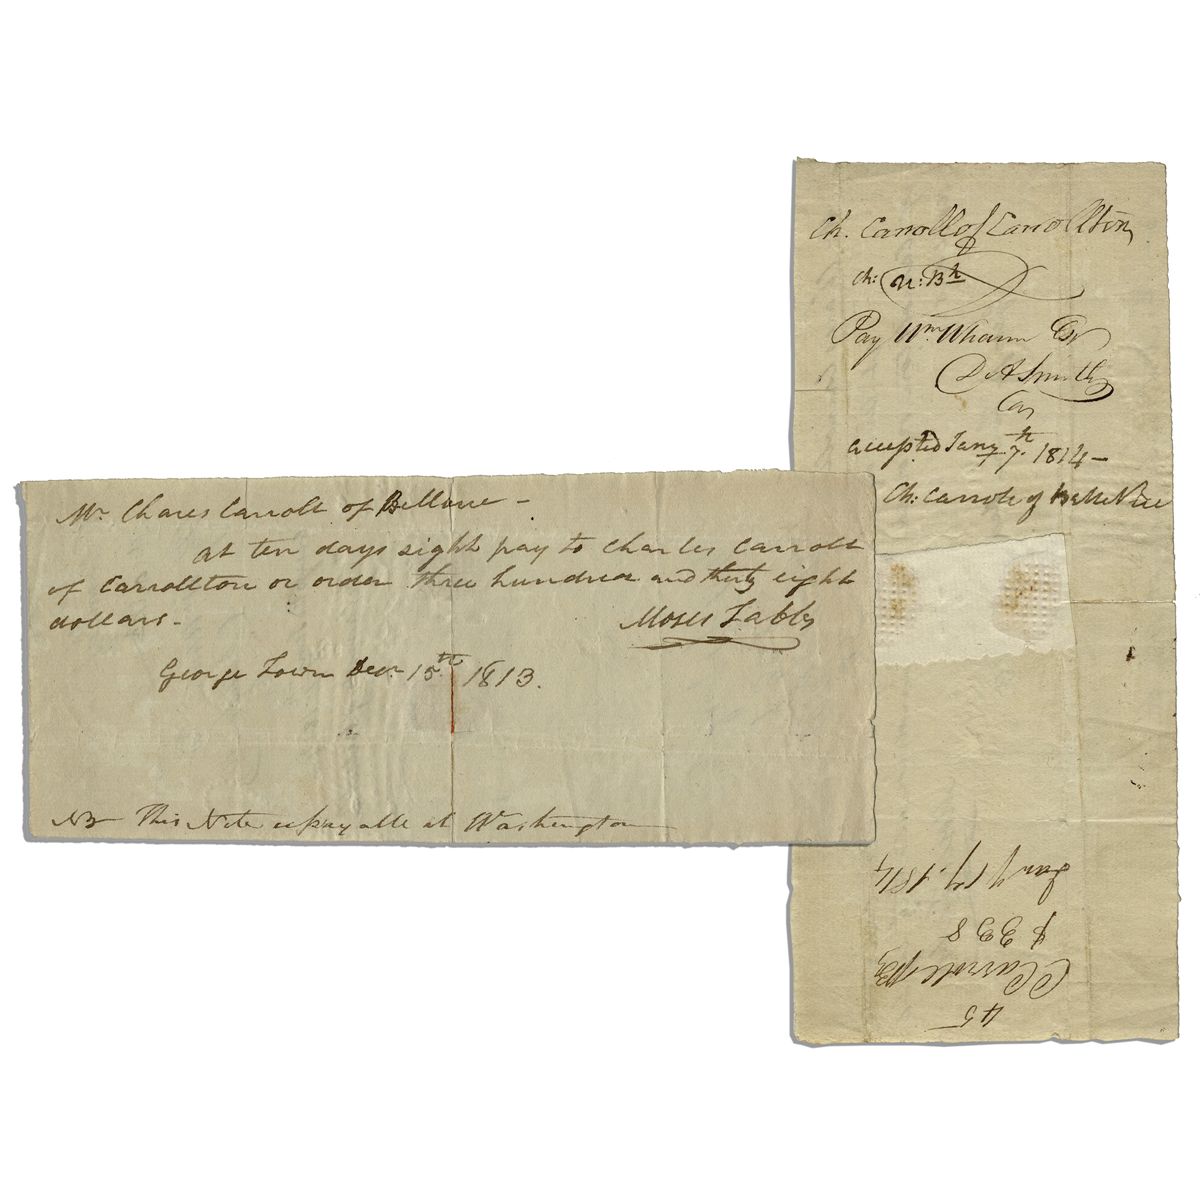 Mr. Chares Carroll of Bellvue -
at ten days sight pay to Charles Carroll
of Carrollton or order three hundred and thirty eight
dollars -
Moses Tabbs
George Town Decr. 15th 1813.
NB This Note is payable at Washington
Ch. Carroll of Carrollton
Ch: N: Bh
Pay Wm Whann Esr
D A Smith
Cas
accepted Jany 7th 1814 -
Ch: Carroll of Belle Vue
45
C Carroll
$ 338
Jany 17. 1814